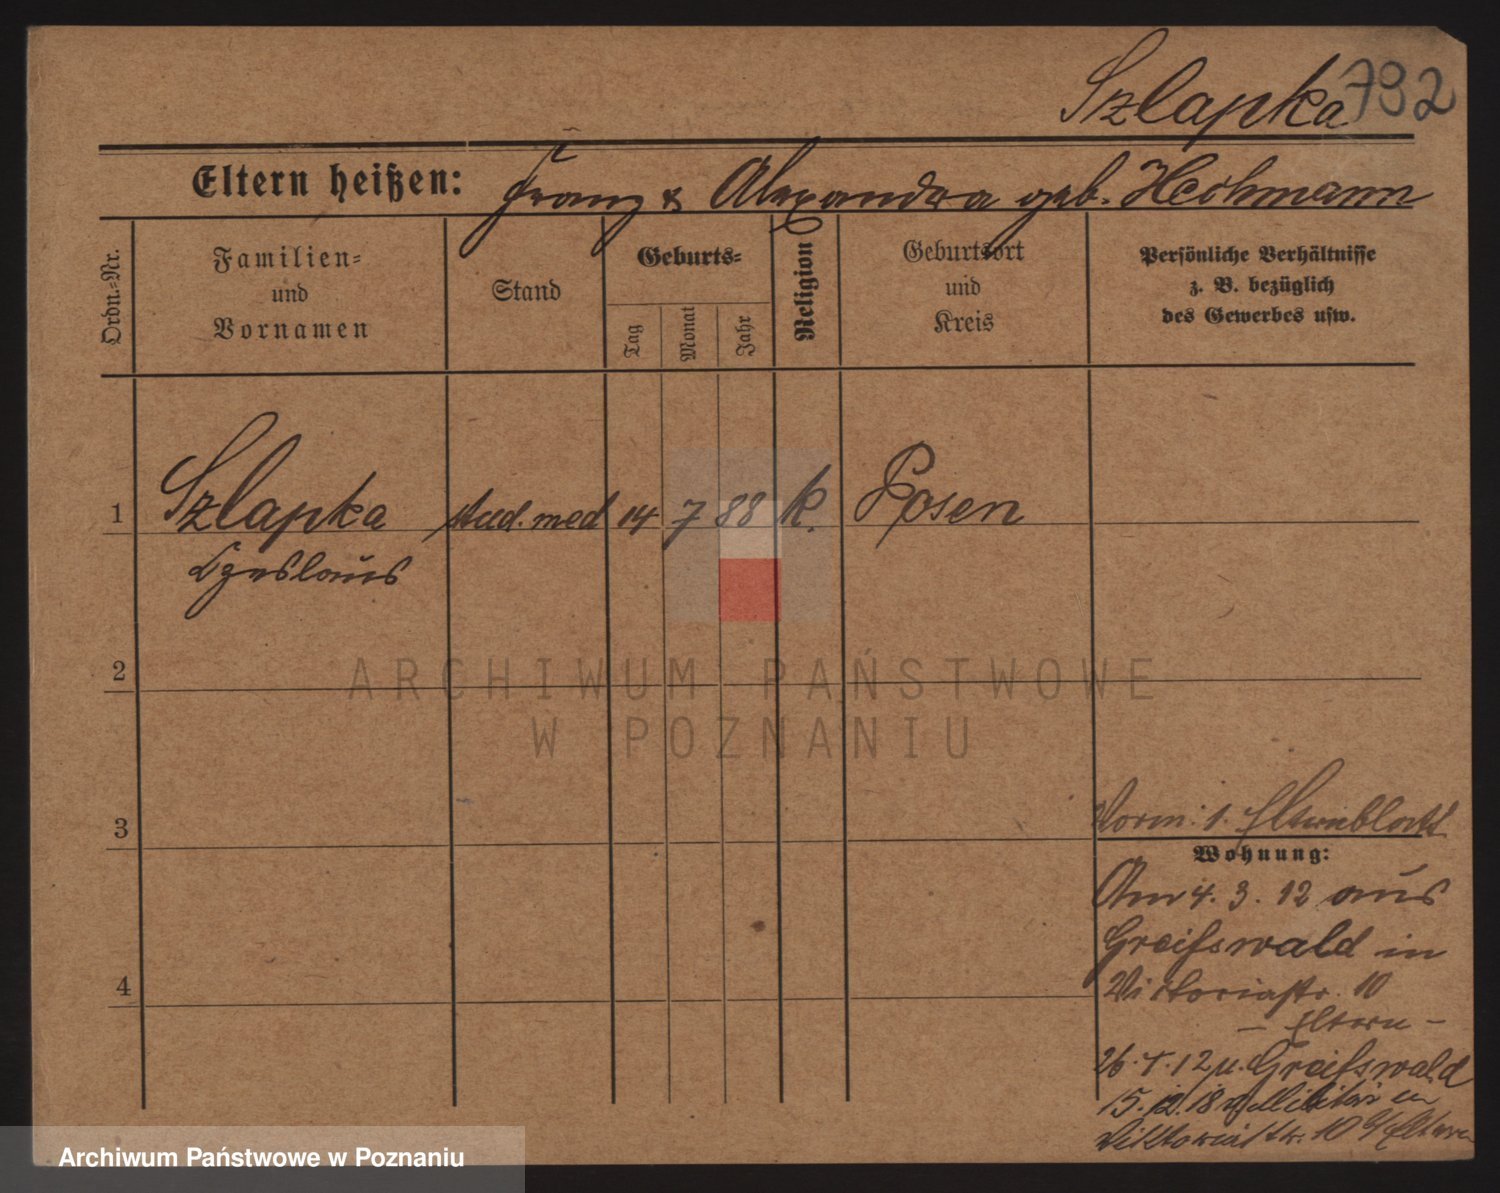 Szlapka 732
Eltern heißen: Franz & Alexandra geb. Heohmann
Ordn.-Nr.
Familien-
und
Vornamen
Stand
Geburts-
Tag
Monat
Jahr
Religion
Geburtsort
und
Kreis
Persönliche Verhältnisse
z. B. bezüglich
des Gewerbes usw.
1 Szlapka stud. med 14 7 88 k. Posen
Czeslaus
2
3
4
Vorm: 1. Elternblatt
Wohnung:
Am 4. 3. 12 aus
Greifswald in
Victoriastr. 10
- Eltern -
26. 4. 12 n. Greifswald
15. 12. 18 v. Militär in
Viktoriastr. 10 b/ Eltern
ARCHIWUM PAŃSTWOWE
W POZNANIU
Archiwum Państwowe w Poznaniu